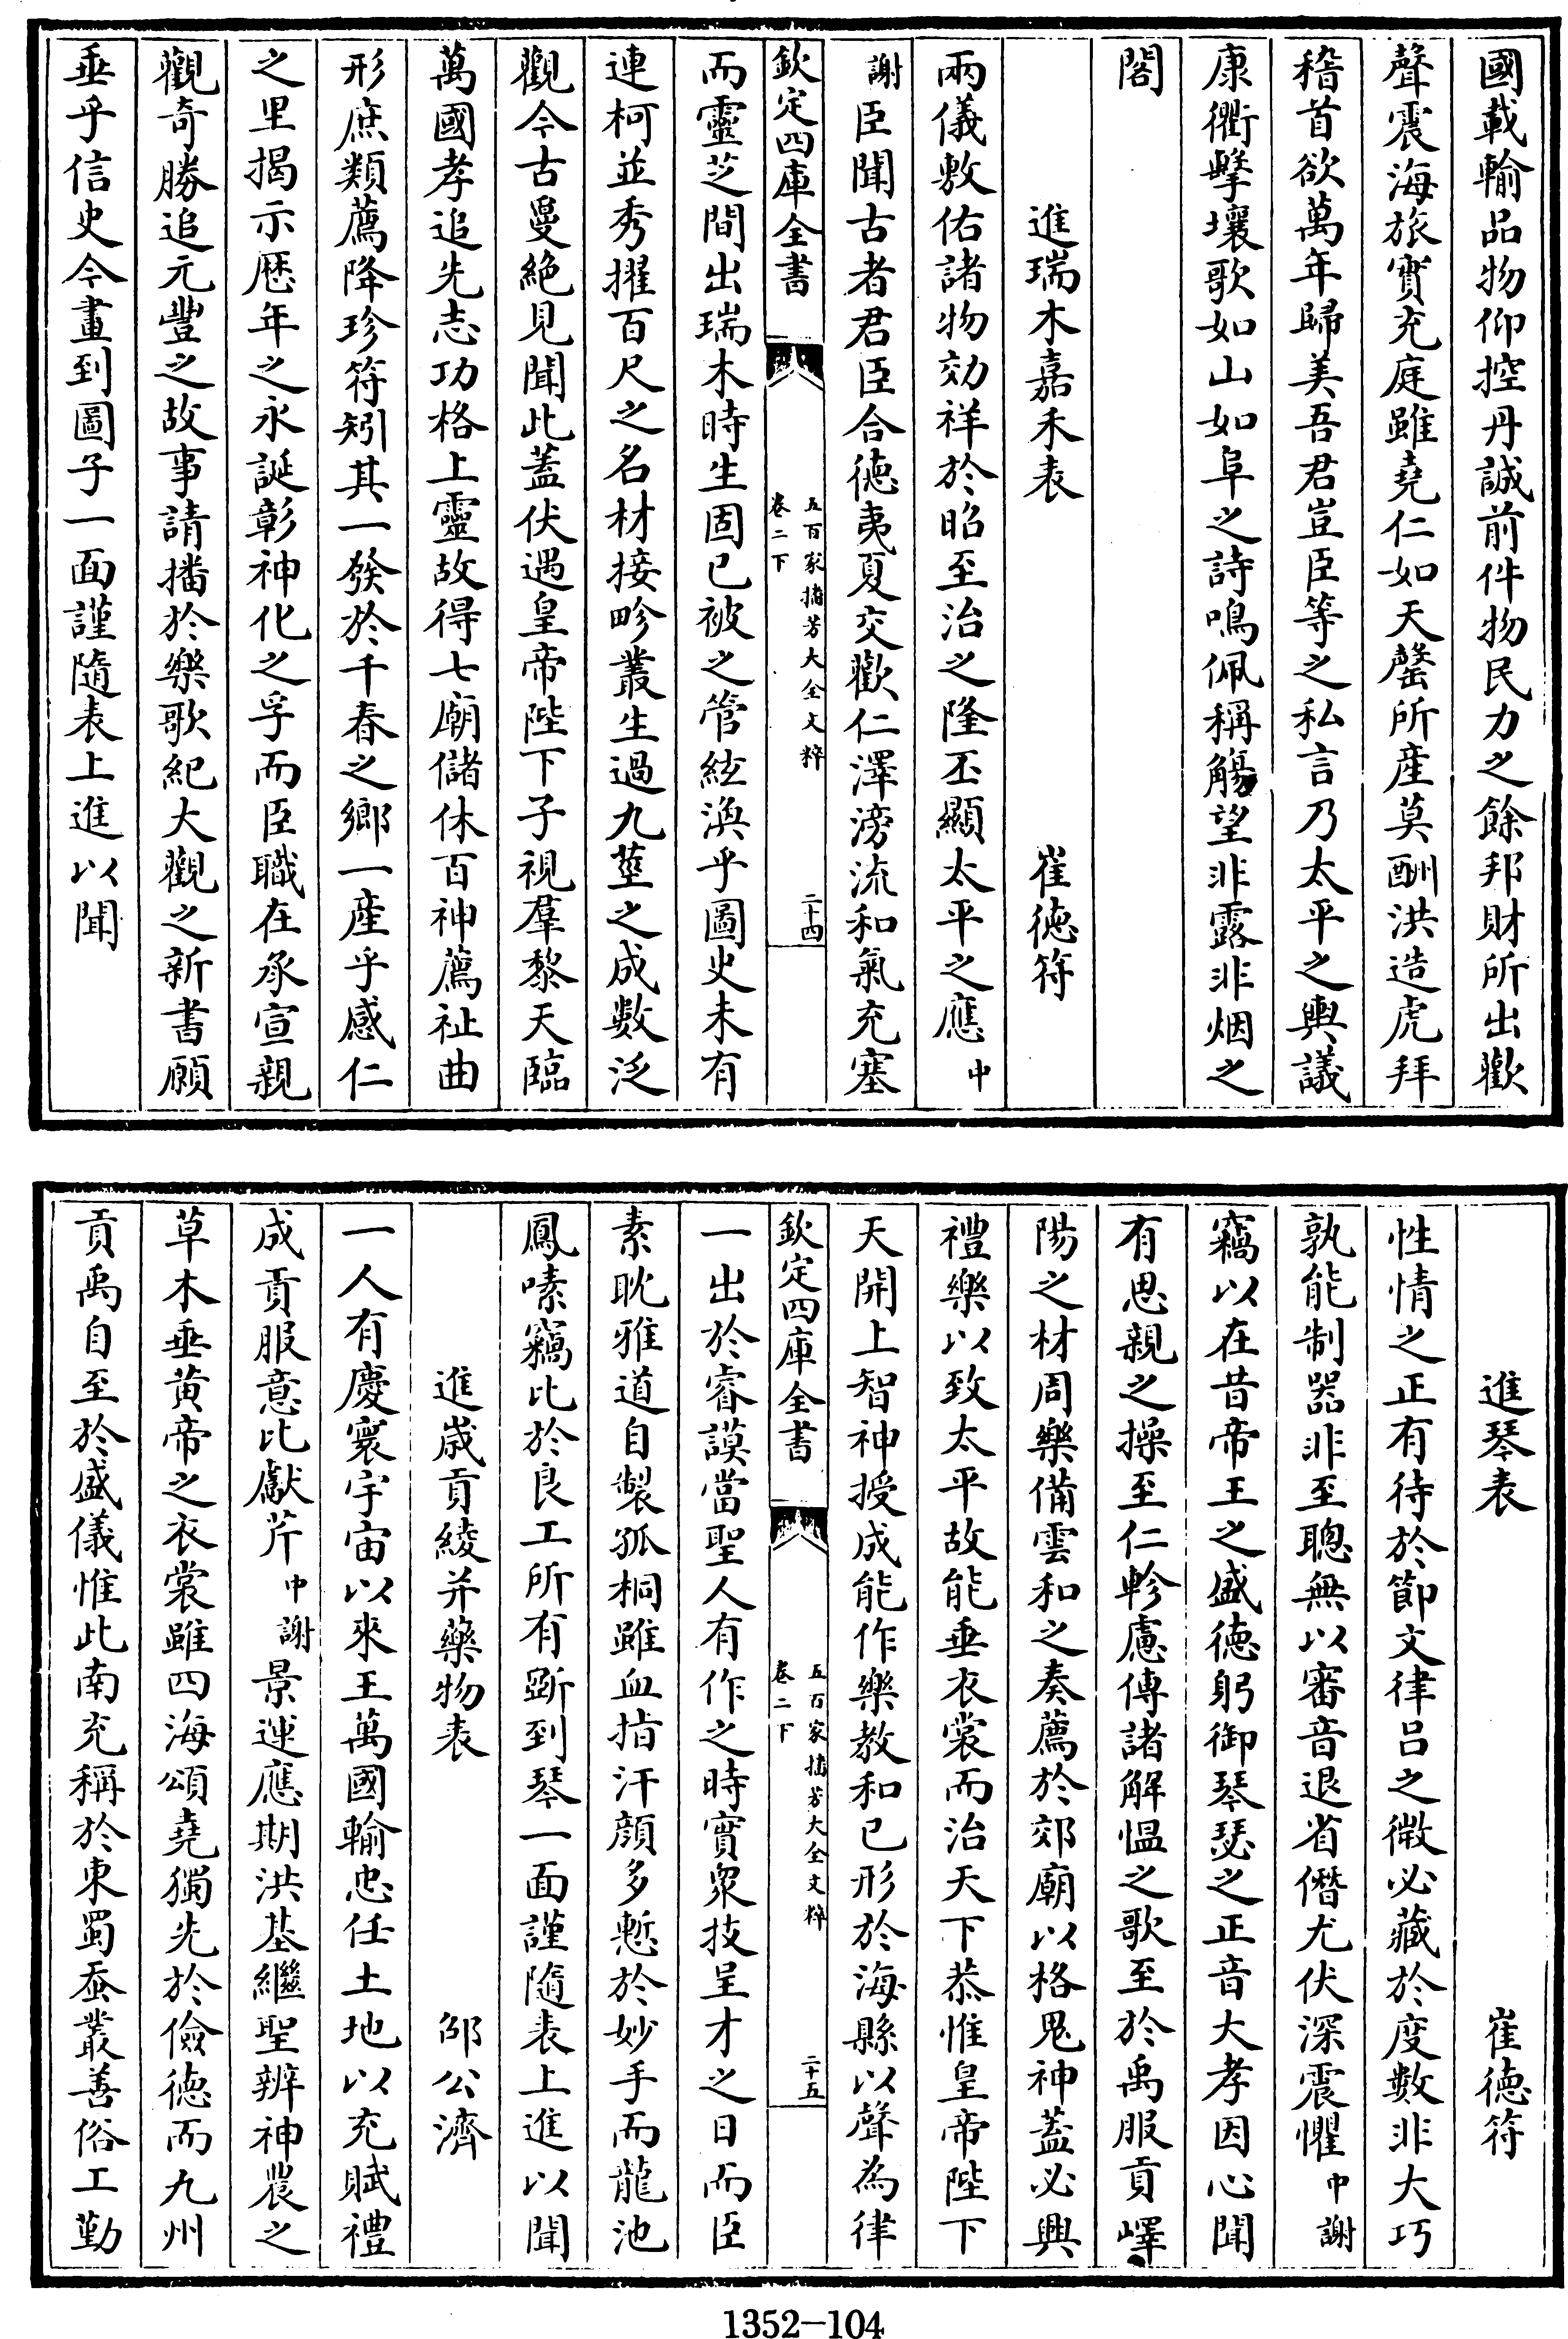 國載輸品物仰控丹誠前件物民力之餘邦財所出歡
聲震海旅實充庭雖堯仁如天罄所産莫酬洪造虎拜
稽首欲萬年歸美吾君豈臣等之私言乃太平之輿議
康衢擊壤歌如山如阜之詩鳴佩稱觴望非露非烟之
閣
進瑞木嘉禾表 崔徳符
兩儀敷佑諸物効祥於昭至治之隆丕顯太平之應中
謝臣聞古者君臣合徳夷夏交歡仁澤滂流和氣充塞
欽定四庫全書 五百家播芳大全文粹 卷二下 二十四
而靈芝間出瑞木時生固已被之管絃渙乎圖史未有
連柯並秀擢百尺之名材接畛叢生過九莖之成數泛
觀今古曼絶見聞此蓋伏遇皇帝陛下子視羣黎天臨
萬國孝追先志功格上靈故得七廟儲休百神薦祉曲
形庶類薦降珍符矧其一發於千春之鄉一産乎感仁
之里揭示歴年之永誕彰神化之孚而臣職在承宣親
觀奇勝追元豐之故事請播於樂歌紀大觀之新書願
垂乎信史今畫到圖子一面謹隨表上進以聞
進琴表 崔徳符
性情之正有待於節文律呂之微必藏於度數非大巧
孰能制器非至聰無以審音退省僭尤伏深震懼中謝
竊以在昔帝王之盛徳躬御琴瑟之正音大孝因心聞
有思親之操至仁軫慮傳諸解慍之歌至於禹服貢嶧
陽之材周樂備雲和之奏薦於郊廟以格鬼神蓋必興
禮樂以致太平故能垂衣裳而治天下恭惟皇帝陛下
天開上智神授成能作樂教和已形於海縣以聲為律
欽定四庫全書 五百家播芳大全文粹 卷二下 二十五
一出於睿謨當聖人有作之時實衆技呈才之日而臣
素耽雅道自製孤桐雖血指汗顔多慙於妙手而龍池
鳳嗉竊比於良工所有斲到琴一面謹隨表上進以聞
進歳貢綾并藥物表 邵公濟
一人有慶寰宇宙以來王萬國輸忠任土地以充賦禮
成貢服意比獻芹中謝景運應期洪基繼聖辨神農之
草木垂黃帝之衣裳雖四海頌堯獨先於儉徳而九州
貢禹自至於盛儀惟此南充稱於東蜀蚕叢善俗工勤
1352-104